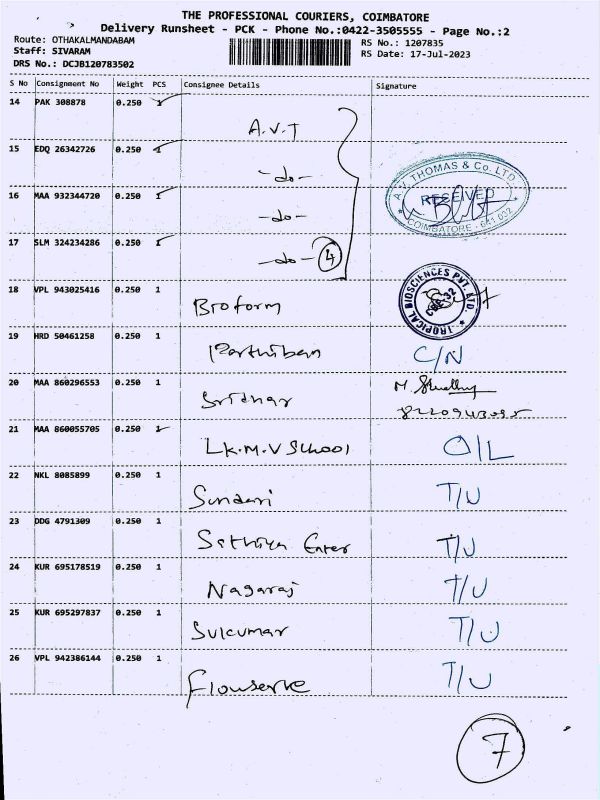 THE PROFESSIONAL COURIERS, COIMBATORE
Delivery Runsheet - PCK - Phone No.:0422-3505555 - Page No.:2
Route: OTHAKALMANDABAM
Staff: SIVARAM
RS No.: 1207835
DRS No.: DCJB120783502
RS Date: 17-Jul-2023
S No Consignment No Weight PCS Consignee Details Signature
14 PAK 308878 0.250 1
A.V.T
15 EDQ 26342726 0.250 1
-do-
A.V. THOMAS & Co. LTD.
RECEIVED
COIMBATORE - 641 032
16 MAA 932344720 0.250 1
-do-
17 SLM 324234286 0.250 1
-do- 4
18 VPL 943025416 0.250 1
Bioform
TROPICAL BIOSCIENCES PVT.LTD.
CBE-32
19 HRD 50461258 0.250 1
Parthiban C/N
20 MAA 860296553 0.250 1
Sridhar
21 MAA 860055705 0.250 1
LK.M.V School O/L
22 NKL 8085899 0.250 1
Sundari T/U
23 DDG 4791309 0.250 1
Sathiya Enter T/U
24 KUR 695178519 0.250 1
Nagaraj T/U
25 KUR 695297837 0.250 1
Suicumar T/U
26 VPL 942386144 0.250 1
Flowserve T/U
7